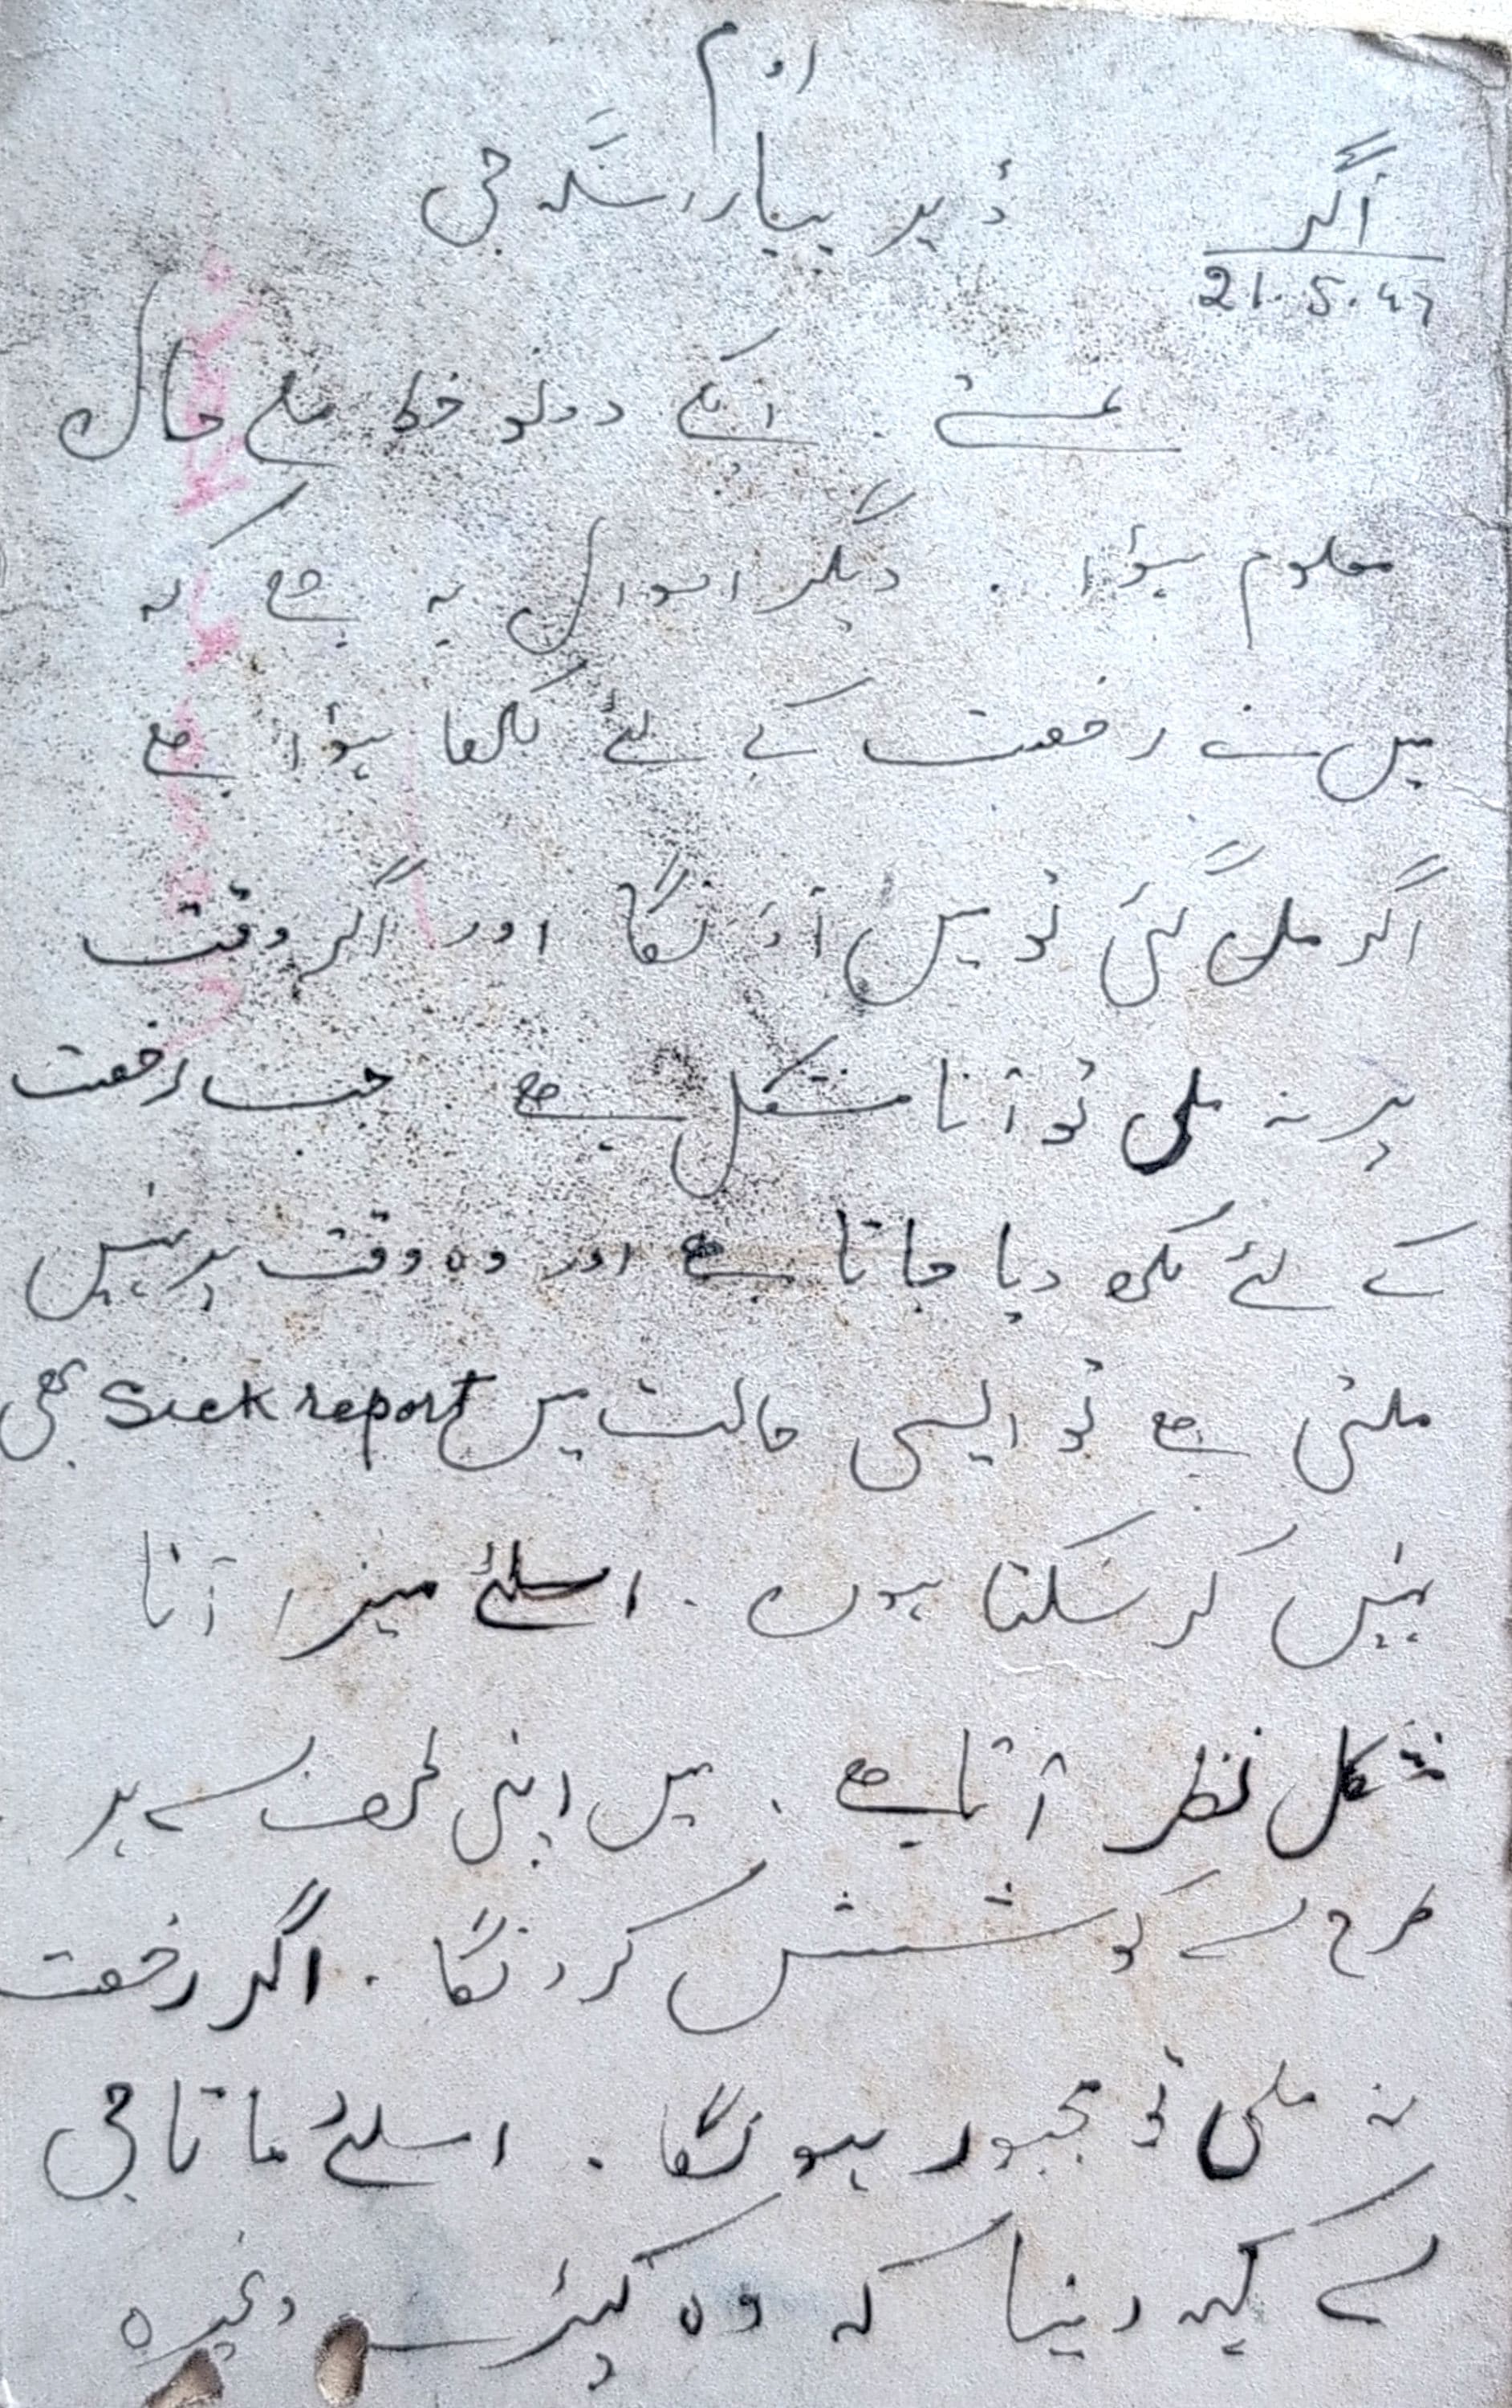 اوم
آگرہ
21.5.47
ڈیر پیارا سنگھ جی
نمستے . آپکے دونو خط ملے حال
معلوم ہوٴا . دیگر احوال یہ ہے کہ
میں نے رخصت کے لئے لکھا ہوٴا ہے
اگر مل گئی تو میں آوٴنگا اور اگر وقت
پر نہ ملی تو آنا مشکل ہے . جب رخصت
کے لئے لکھ دیا جاتا ہے اور وہ وقت پر نہیں
ملتی ہے تو ایسی حالت میں Sick report بھی
نہیں کر سکتا ہوں . اسلئے میرا آنا
مشکل نظر آتا ہے . میں اپنی طرف سے ہر
طرح سے کوشش کرونگا . اگر رخصت
نہ ملی تو مجبور ہونگا . اسلئے ماتا جی
سے کہہ دینا کہ وہ کپڑے وغیرہ